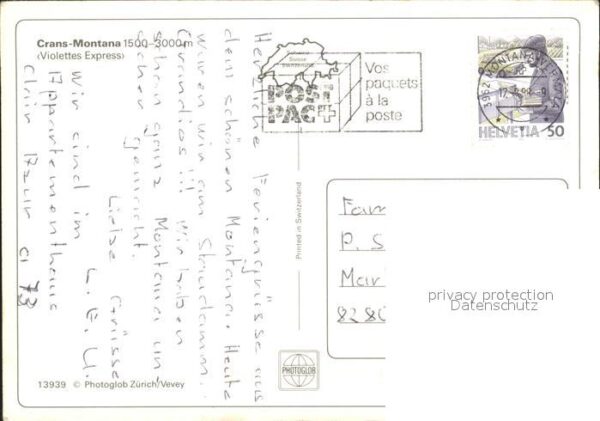 Crans-Montana 1500-3000m
(Violettes Express)
Herzliche Feriengrüsse aus
dem schönen Montana. Heute
waren wir am
Grandios !!! Wir haben
schon ganz Montana un
sicher gemacht.
Liebe Grüsse
L. E. U.
Wir sind im
Appartementhaus
Suisse
POST
PAC
Vos
paquets
à la
poste
3962 MONTANA
HELVETIA 50
Printed in Switzerland
Fam
P. S
Mar
8280
privacy protection
Datenschutz
PHOTOGLOB
13939 © Photoglob Zürich/Vevey